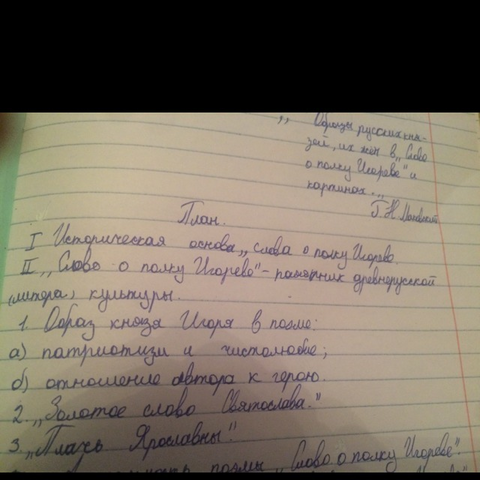 „ Образы русских кня-
зей, их жён в „Слово
о полку Игореве" и
картинах „
План.
I Историческая основа „слова о полку Игорево
II „Слово о полку Игорево" - памятник древнерусской
культуры.
1. Образ князя Игоря в поэме:
а) патриотизм и честолюбие;
б) отношение автора к герою.
2. „Золотое слово Святослава."
3. „Плачь Ярославны".
поэмы „Слово о полку Игореве".